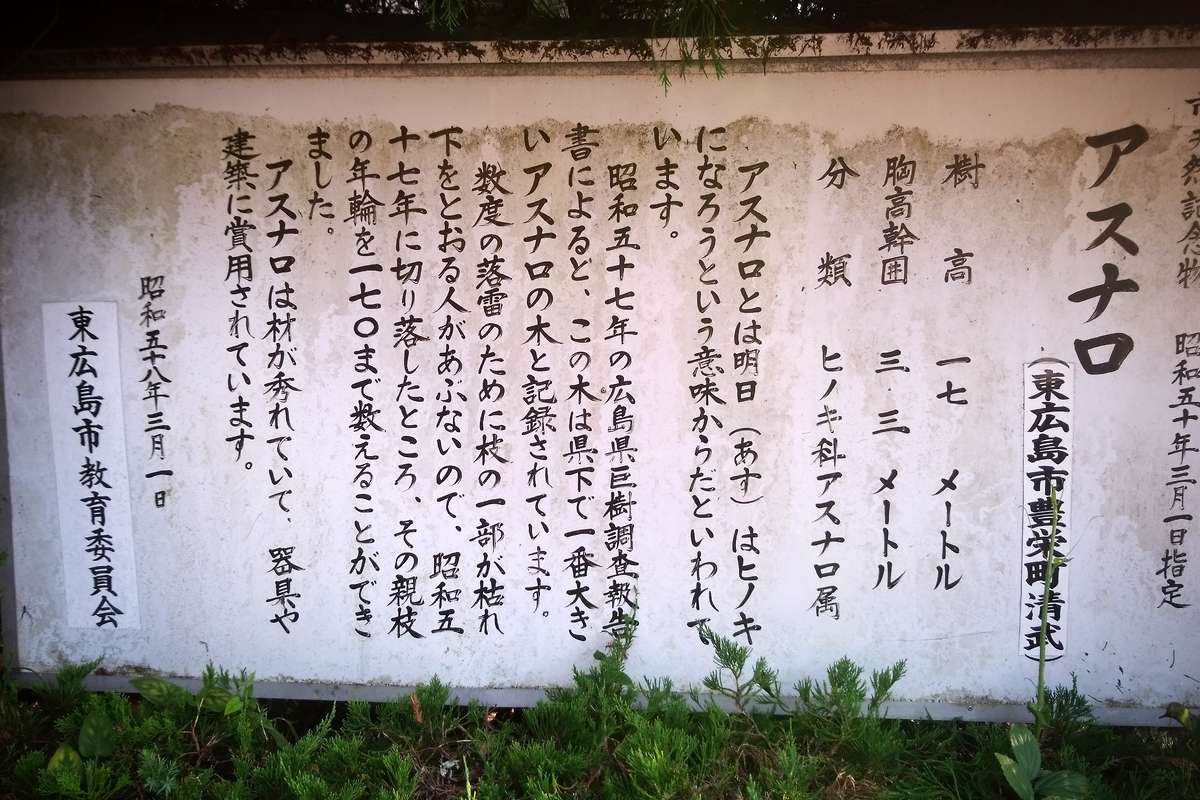 市天然記念物 昭和五十年三月一日指定
アスナロ
(東広島市豊栄町清武)
樹高 一七 メートル
胸高幹囲 三.三 メートル
分類 ヒノキ科アスナロ属
アスナロとは明日(あす)はヒノキ
になろうという意味からだといわれて
います。
昭和五十七年の広島県巨樹調査報告
書によると、この木は県下で一番大き
いアスナロの木と記録されています。
数度の落雷のために枝の一部が枯れ
下をとおる人があぶないので、昭和五
十七年に切り落したところ、その親枝
の年輪を一七〇まで数えることができ
ました。
アスナロは材が秀れていて、器具や
建築に賞用されています。
昭和五十八年三月一日
東広島市教育委員会